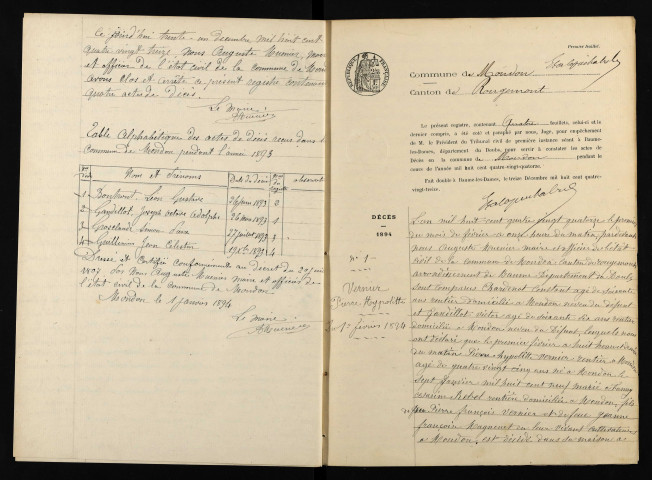 Ce jourd'hui trente-un décembre mil huit cent
quatre vingt treize, Nous Auguste Meunier, maire
et officier de l'état civil de la commune de Mondon
avons clos et arrêté ce présent registre contenant
quatre actes de décès.
Le Maire
Table Alphabétique des actes de décès reçus dans la
Commune de Mondon pendant l'année 1893
Nom et Prénoms
Date du décès
1
Léon Gustave
26 1893
2
Gaudillot, Joseph Adolphe
26 mai 1893
3
27 juillet 1893
4
Guillemin Jean Célestin
1893
4
Dressé et certifié conformément au décret du 20
1807 par Nous Auguste Meunier maire et officier de
l'état civil de la commune de Mondon.
Mondon le 1 janvier 1894
Le Maire
Premier feuillet.
RÉPUBLIQUE FRANÇAISE
Commune de Mondon
Canton de Rougemont
Le présent registre, contenant Quatre feuillets, celui-ci et le
dernier compris, a été coté et paraphé par nous, Juge, pour empêchement
de M. le Président du Tribunal civil de première instance séant à Baume-
les-Dames, département du Doubs, pour servir à constater les actes de
Décès en la commune de Mondon pendant le
cours de l'année mil huit cent quatre-vingt-quatorze.
Fait double à Baume-les-Dames, le treize Décembre mil huit cent quatre-
vingt-treize.
DÉCÈS
1894
N° 1
Vernier
Pierre Hyppolitte
1er février 1894
L'an mil huit cent quatre vingt quatorze le premier
du mois de février à onze heures du matin, pardevant
nous Auguste Meunier maire et officier de l'état
civil de la commune de Mondon Canton de Rougemont
arrondissement de Baume Département du Doubs
sont comparus Constant âgé de soixante
ans rentier domicilié à Mondon neveu du défunt
et Gaudillot Victor âgé de soixante six ans rentier
domicilié à Mondon neveu du défunt, lesquels nous
ont déclaré que le premier février à huit heures
du matin Pierre Hyppolitte Vernier rentier à Mondon
âgé de quatre vingt cinq ans né à Mondon le
sept janvier mil huit cent neuf marié à
rentière domiciliée à Mondon, fils
de Pierre François Vernier et de Jeanne
françoise en leur vivant cultivateurs
à Mondon, est décédé dans sa maison à